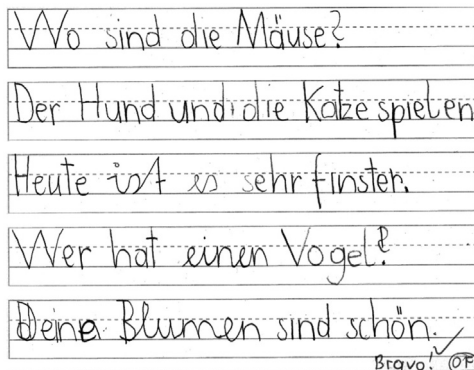 Wo sind die Mäuse?
Der Hund und die Katze spielen
Heute ist es sehr finster.
Wer hat einen Vogel?
Deine Blumen sind schön.
Bravo! OP